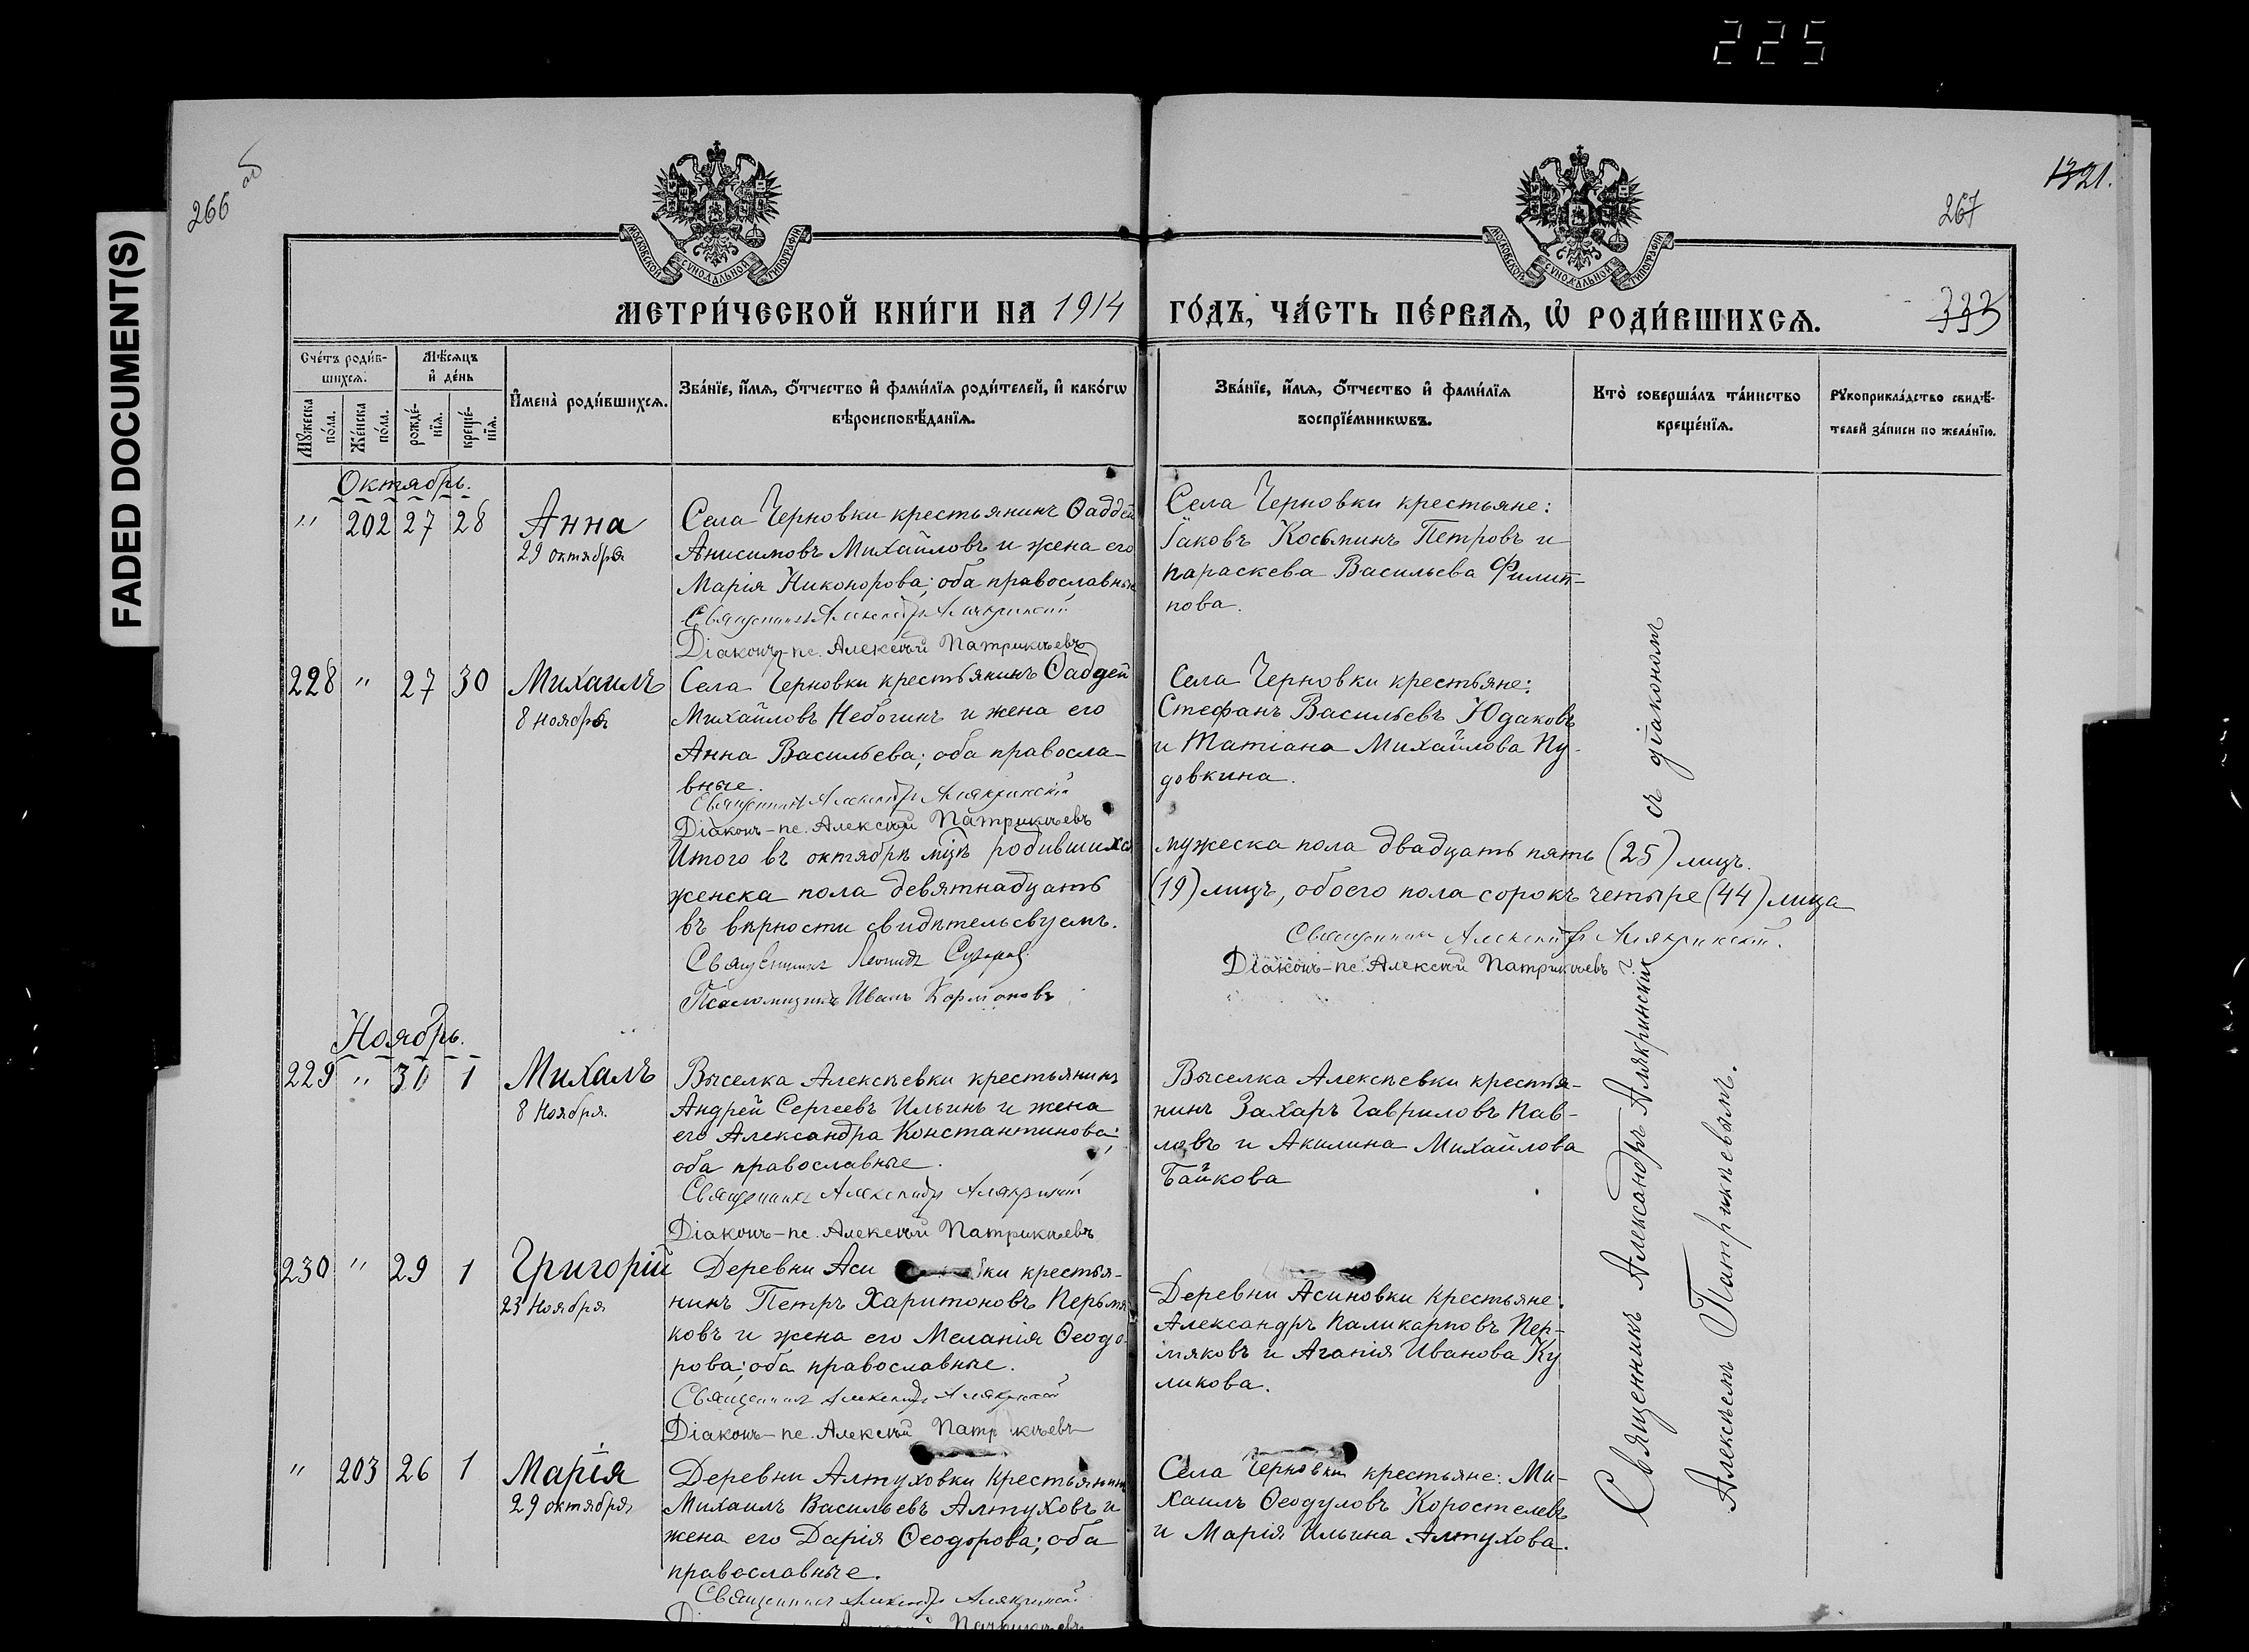 225
FADED DOCUMENT(S)
266 об
267
1321.
333
МОСКОВСКОЙ СУНОДАЛЬНОЙ ТИПОГРАФІИ
МОСКОВСКОЙ СУНОДАЛЬНОЙ ТИПОГРАФІИ
МЕТРИ́ЧЕСКОЙ КНИ́ГИ НА 1914 ГО́ДЪ, ЧА́СТЬ ПЕ́РВАѦ, Ѡ РОДИ́ВШИХСѦ.
Сче́тъ роди́в-
шихсѧ.
Мꙋжеска по́ла.
Же́нска по́ла.
Мѣ́сѧцъ
и де́нь
рожде́-
нїѧ.
креще́-
нїѧ.
Имена̀ роди́вшихсѧ.
Зва́нїе, и́мѧ, ѻ́тчество и фами́лїѧ роди́телей, и како́гѡ
вѣроисповѣ́данїѧ.
Зва́нїе, и́мѧ, ѻ́тчество и фами́лїѧ
воспрїе́мникѡвъ.
Кто̀ соверша́лъ та́инство
креще́нїѧ.
Рꙋкоприкла́дство свидѣ́-
телей за́писи по жела́нїю.
Октябрь.
" 202 27 28 Анна
29 октября
Села Черновки крестьянинъ Ѳаддей
Анисимовъ Михайловъ и жена его
Марія Никонорова; оба православные
Священникъ Александръ Алякринскій
Діаконъ-пс. Алексѣй Патрикѣевъ
Села Черновки крестьяне:
Іаковъ Косьминъ Петровъ и
параскева Васильева Филип-
пова.
228 " 27 30 Михаилъ
8 ноября
Села Черновки крестьянинъ Ѳаддей
Михайловъ Небогинъ и жена его
Анна Васильева; оба правосла-
вные.
Священникъ Александръ Алякринскій
Діаконъ-пс. Алексѣй Патрикѣевъ
Села Черновки крестьяне:
Стефанъ Васильевъ Юдаковъ
и Татіана Михайлова Пу-
довкина.
Итого въ октябрѣ мцѣ родившихся мужеска пола двадцать пять (25) лицъ.
женска пола девятнадцать (19) лицъ, обоего пола сорокъ четыре (44) лица
въ вѣрности свидѣтельсвуемъ.
Священникъ Александръ Алякринскій.
Священникъ Леонидъ
Діаконъ-пс. Алексѣй Патрикѣевъ
Псаломщикъ Иванъ
Ноябрь.
229 " 31 1 Михалъ
8 Ноября.
Выселка Алексѣевки крестьянинъ
Андрей Сергеевъ Ильинъ и жена
его Александра Константинова;
оба православные.
Священникъ Александръ Алякринскій
Діаконъ-пс. Алексѣй Патрикѣевъ
Выселка Алексѣевки крестья-
нинъ Захаръ Гавриловъ Пав-
ловъ и Акилина Михайлова
Байкова
230 " 29 1 Григорій
23 Ноября
Деревни Аси ки крестья-
нинъ Петръ Харитоновъ Пермя
ковъ и жена его Меланія Ѳеодо-
рова; оба православные.
Священникъ Александръ Алякринскій
Діаконъ-пс. Алексѣй Патр кѣевъ
Деревни Асиновки крестьяне:
Александръ Паликарповъ Пер-
мяковъ и Агапія Иванова Ку
ликова.
" 203 26 1 Марія
29 октября
Деревни Алтуховки крестьянинъ
Михаилъ Васильевъ Алтуховъ и
жена его Дарія Ѳеодорова; оба
православные.
Священникъ Александръ Алякринскій
Села Черновки крестьяне: Ми-
хаилъ Ѳеодуловъ Коростелевъ
и Марія Ильина Алтухова.
Священникъ Александръ Алякринскій съ діакономъ
Алексѣемъ Патрикѣевымъ.